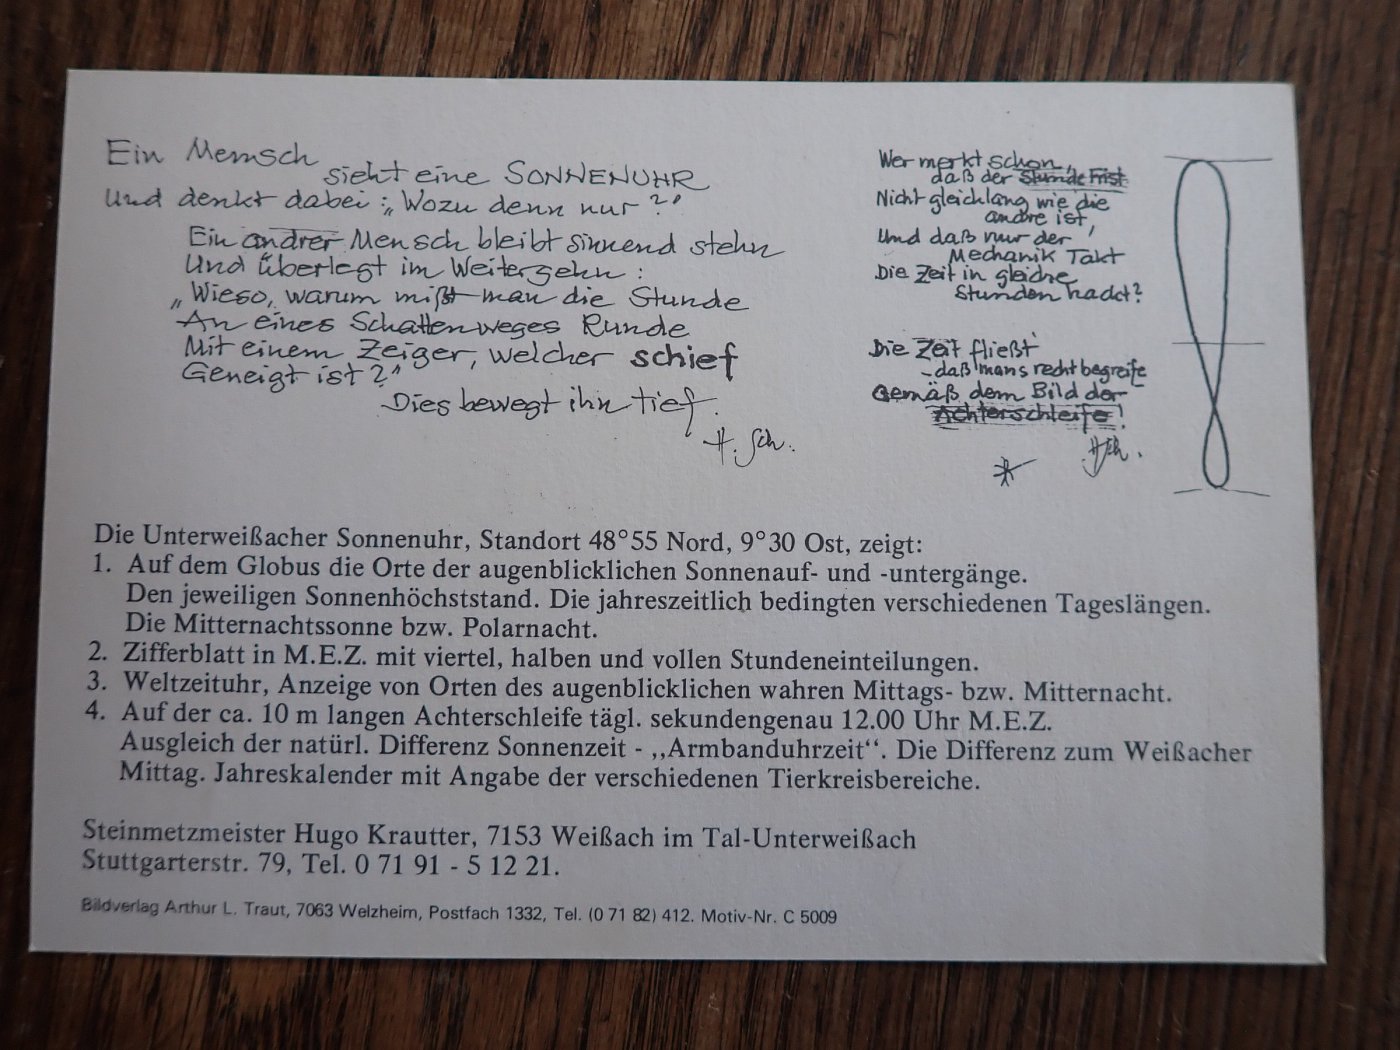 Ein Mensch
sieht eine SONNENUHR
Und denkt dabei: „Wozu denn nur?"
Ein andrer Mensch bleibt sinnend stehn
Und überlegt im Weitergehn:
„Wieso, warum mißt man die Stunde
An eines Schattenweges Runde
Mit einem Zeiger, welcher schief
Geneigt ist?"
Dies bewegt ihn tief.
H. Sch.
Wer merkt schon,
daß der Stunde Frist
Nicht gleichlang wie die
andre ist,
Und daß nur der
Mechanik Takt
Die Zeit in gleiche
Stunden hackt?
Die Zeit fließt
- daß man's recht begreife -
Gemäß dem Bild der
Achterschleife!
HSch.
Die Unterweißacher Sonnenuhr, Standort 48°55 Nord, 9°30 Ost, zeigt:
1. Auf dem Globus die Orte der augenblicklichen Sonnenauf- und -untergänge.
Den jeweiligen Sonnenhöchststand. Die jahreszeitlich bedingten verschiedenen Tageslängen.
Die Mitternachtssonne bzw. Polarnacht.
2. Zifferblatt in M.E.Z. mit viertel, halben und vollen Stundeneinteilungen.
3. Weltzeituhr, Anzeige von Orten des augenblicklichen wahren Mittags- bzw. Mitternacht.
4. Auf der ca. 10 m langen Achterschleife tägl. sekundengenau 12.00 Uhr M.E.Z.
Ausgleich der natürl. Differenz Sonnenzeit - ,,Armbanduhrzeit“. Die Differenz zum Weißacher
Mittag. Jahreskalender mit Angabe der verschiedenen Tierkreisbereiche.
Steinmetzmeister Hugo Krautter, 7153 Weißach im Tal-Unterweißach
Stuttgarterstr. 79, Tel. 0 71 91 - 5 12 21.
Bildverlag Arthur L. Traut, 7063 Welzheim, Postfach 1332, Tel. (0 71 82) 412. Motiv-Nr. C 5009